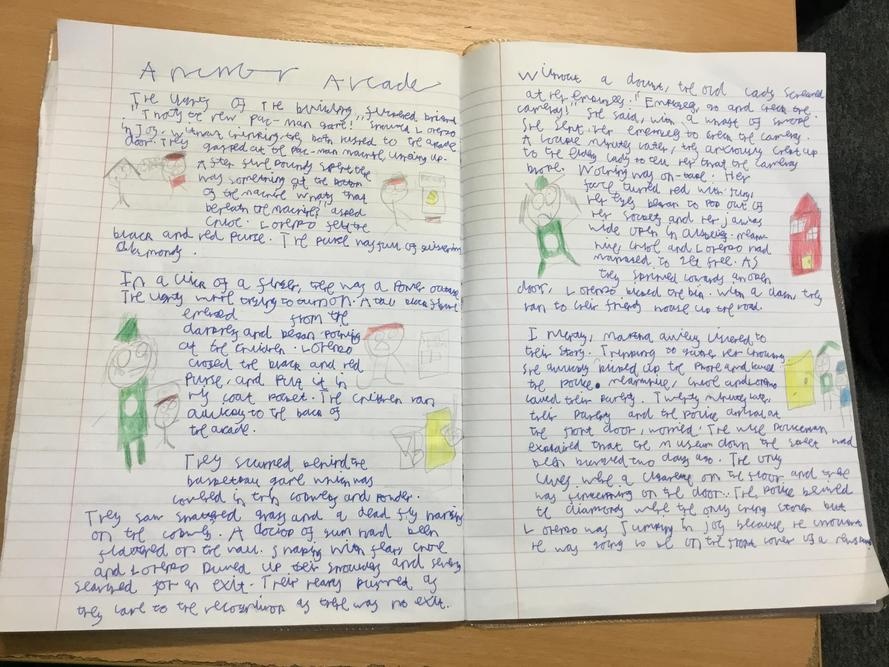 Arcade
The lights of the building flickered
"That's the new pac-man game!" Lorenzo
in Joy. Without thinking, they both rushed to the arcade
door. They gasped at the pac-man machine
After five pounds spent there
was something at the
of the machine. "Whats that
beneath the machine," asked
Chloe. Lorenzo felt the
black and red Purse. The Purse was full of
diamonds.
In a click of a finger, there was a Power outage
The lights were trying to turn on. A tall black figure
emerged from the
darkness and began pointing
at the Children. Lorenzo
closed the black and red
Purse, and Put it in
my coat Pocket. The children ran
quickly to the back of
the arcade.
They scurried behind the
basketball game which was
covered in thin cobwebs and Powder.
They saw smashed glass and a dead fly
on the cobwebs. A of gum had been
flattened on the wall. Shaking with fear, Chloe
and Lorenzo up their shoulders and
searched for an exit. Their hearts as
they came to the as there was no exit.
Without a doubt, the old lady screamed
at her employees. "Employees, go and check the
cameras!" She said, with a
She sent her employees to check the cameras.
A couple minutes later, they anxiously up
to the elderly lady to tell her that the cameras
broke. Her
face turned red with fury,
Her eyes began to Pop out of
her sockets and her Jaw was
wide open in
Chloe and Lorenzo had
managed to free. As
they sprinted towards another
door, Lorenzo the they
ran to their friends house up the road.
I Mercy, Martha listened to
their story. Thinking to
she quickly picked up the Phone and called
the Police. Meanwhile, Chloe and Lorenzo
called their Parents. Twenty minutes later,
their Parents and the Police arrived at
the front door, worried. The Policeman
explained that the Museum down the street had
been two days ago. The only
clues were a on the floor and there
was on the door. The Police
the diamonds were the only thing stolen but
Lorenzo was Jumping in Joy because he
he was going to be on the front cover of a